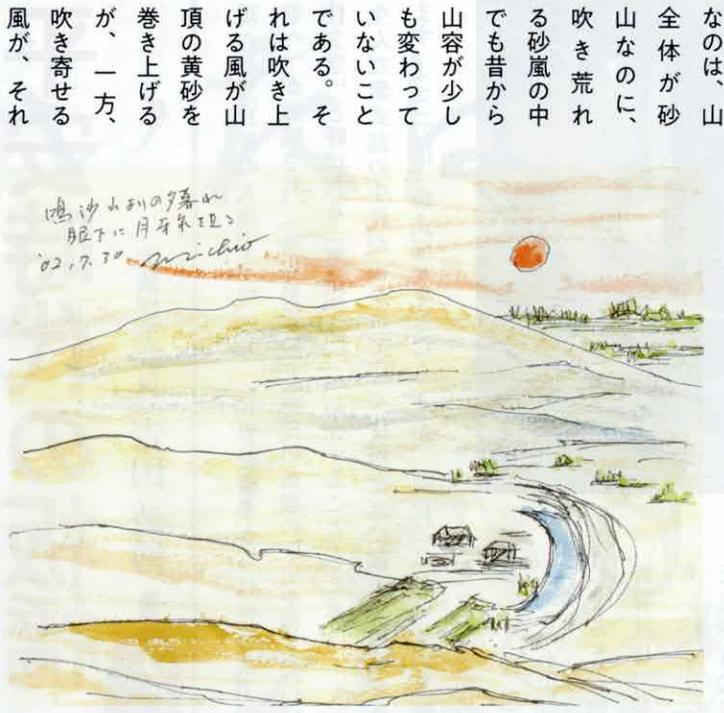 なのは、山
全体が砂
山なのに、
吹き荒れ
る砂嵐の中
でも昔から
山容が少し
も変わって
いないこと
である。そ
れは吹き上
げる風が山
頂の黄砂を
巻き上げる
が、一方、
吹き寄せる
風が、それ
鳴沙山よりの夕暮れ
眼下に月牙泉を見る
'02.7.30 michio